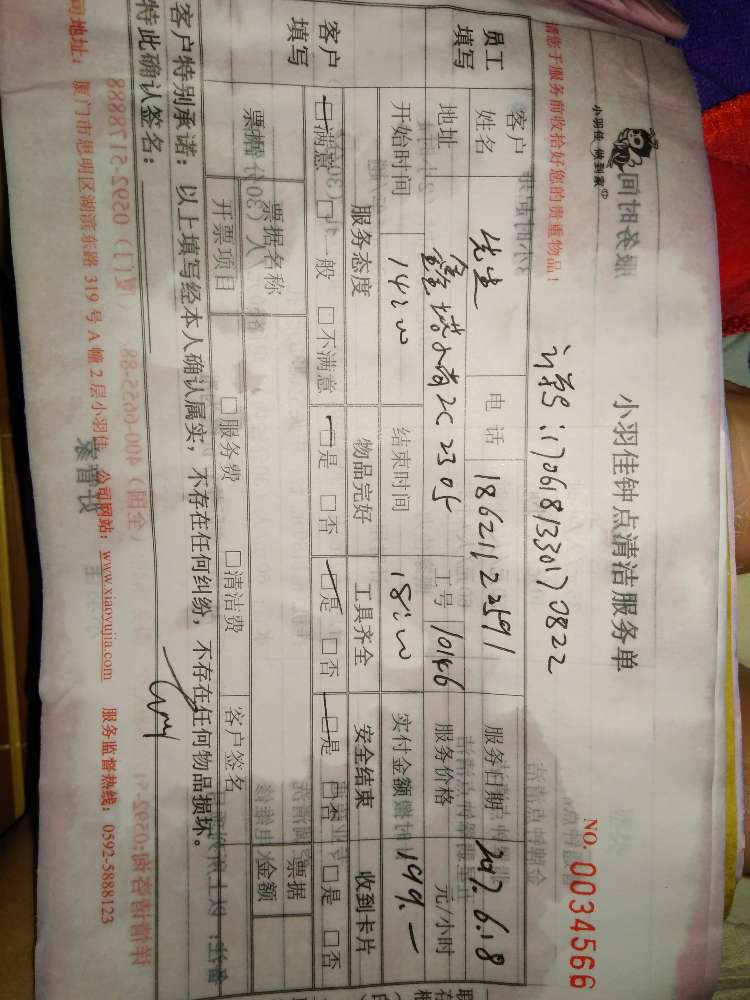 小羽佳 做到家
小羽佳钟点清洁服务单
NO. 0034566
请您于服务前收拾好您的贵重物品！
订单号：1706181330170822
员工填写
客户姓名 先生 电话 18621122591 服务日期 2017.6.18
地址 2C 2305 工号 10146 服务价格 元/小时
开始时间 14:00 结束时间 18:00 实付金额 199.—
客户填写
服务态度 物品完好 工具齐全 安全结束 收到卡片
□满意 □一般 □不满意 □是 □否 □是 □否 □是 □否 □是 □否
票据名称 票据金额
开票项目 □服务费 □清洁费 客户签名
客户特别承诺：以上填写经本人确认属实，不存在任何纠纷，不存在任何物品损坏。
特此确认签名：
司地址：厦门市思明区湖滨东路 319 号 A 幢 2 层小羽佳 公司网站：www.xiaoyujia.com 服务监督热线：0592-5888123